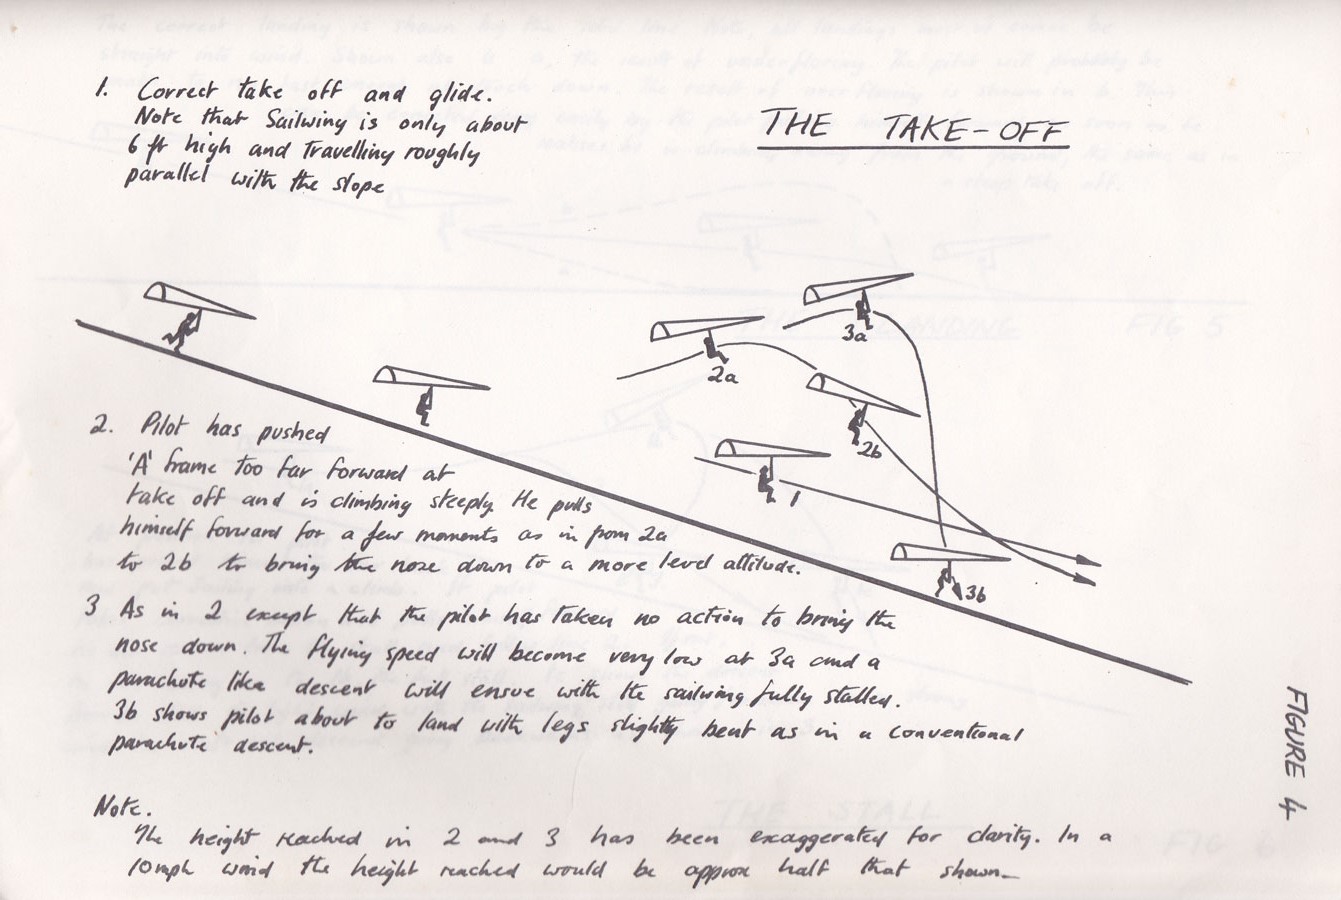 THE TAKE-OFF
1. Correct take off and glide.
Note that Sailwing is only about
6 ft high and Travelling roughly
parallel with the slope
3a
2a
2b
1
3b
2. Pilot has pushed
'A' frame too far forward at
take off and is climbing steeply. He pulls
himself forward for a few moments as in from 2a
to 2b to bring the nose down to a more level attitude.
3 As in 2 except that the pilot has taken no action to bring the
nose down. The flying speed will become very low at 3a and a
parachute like descent will ensue with the sailwing fully stalled.
3b shows pilot about to land with legs slightly bent as in a conventional
parachute descent.
Note.
The height reached in 2 and 3 has been exaggerated for clarity. In a
10mph wind the height reached would be approx half that shown—
FIGURE 4
THE LANDING
FIG 5
THE STALL
FIG 6